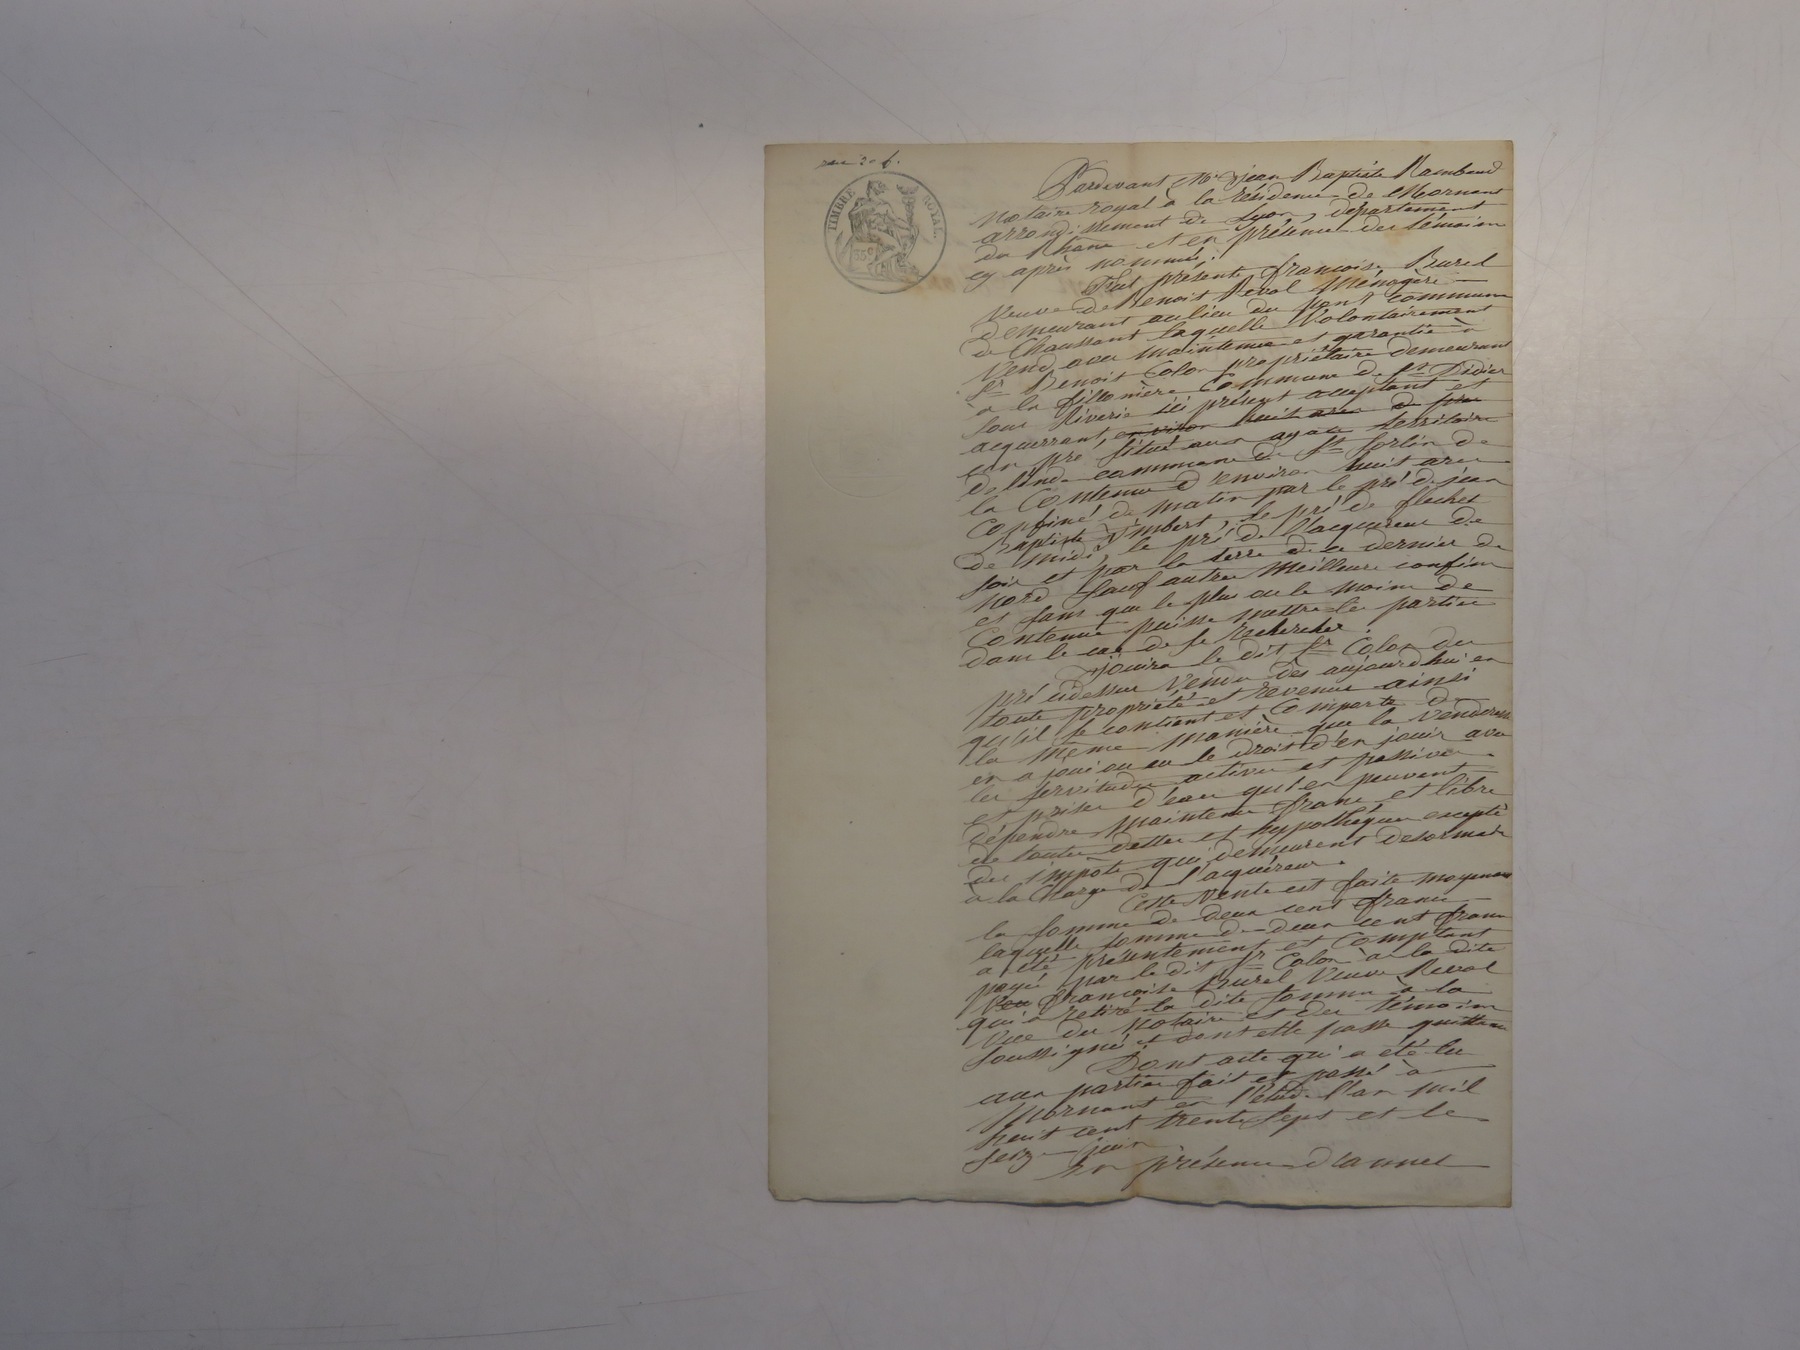 TIMBRE ROYAL
35 c
Pardevant Me Jean Baptiste Rambaud
Notaire royal à la résidence de Mornant
arrondissement de Lyon, département
du Rhone et en présence des témoins
cy après nommés.
Fut présente françoise Burel
Veuve de Benoit Reval Ménagère
demeurant au lieu du pont commune
de Chaussant laquelle Volontairement
Vend avec maintenue et garantie à
Sr Benoit Colon propriétaire demeurant
à la fillonière Commune de St Didier
sous Riverie ici présent acceptant et
acquerrant, environ huit ares de pré
un pré situé aux territoire
de commune de St Sorlin de
la Contenue d'environ huit ares
Confiné de matin par le pré de jean
Baptiste Imbert, le pré de flechet
de midi, le pré de l'acquereur de
soir et par la terre de ce dernier de
nord sauf autres Meilleurs confins
et sans que le plus ou le moins de
Contenue puisse mettre les parties
dans le cas de se rechercher.
jouira le dit Sr Colon du
pré cidessus Vendu dès aujourd'hui en
toute propriété et revenus ainsi
qu'il se contient et Comporte de
la même manière que la Venderesse
en a joui ou eu le droit d'en jouir avec
les servitudes actives et passives
et prises d'eau qui en peuvent
dépendre Maintenu franc et libre
de toutes dettes et hypothèques excepté
des impots qui demeurent desormais
à la Charge de l'acquéreur.
Cette Vente est faite moyenant
la somme de deux cent francs
laquelle somme de deux cent francs
a été présentement et Comptant
payée par le dit Sr Colon à la dite
Veu françoise Burel Veuve Reval
qui a retiré la dite somme à la
Vue du Notaire et des témoins
soussignés et dont elle passe quittance
Dont acte qui a été lu
aux parties fait et passé à
Mornant en l'étude l'an mil
huit cent trente sept et le
seize juin
En présence d'